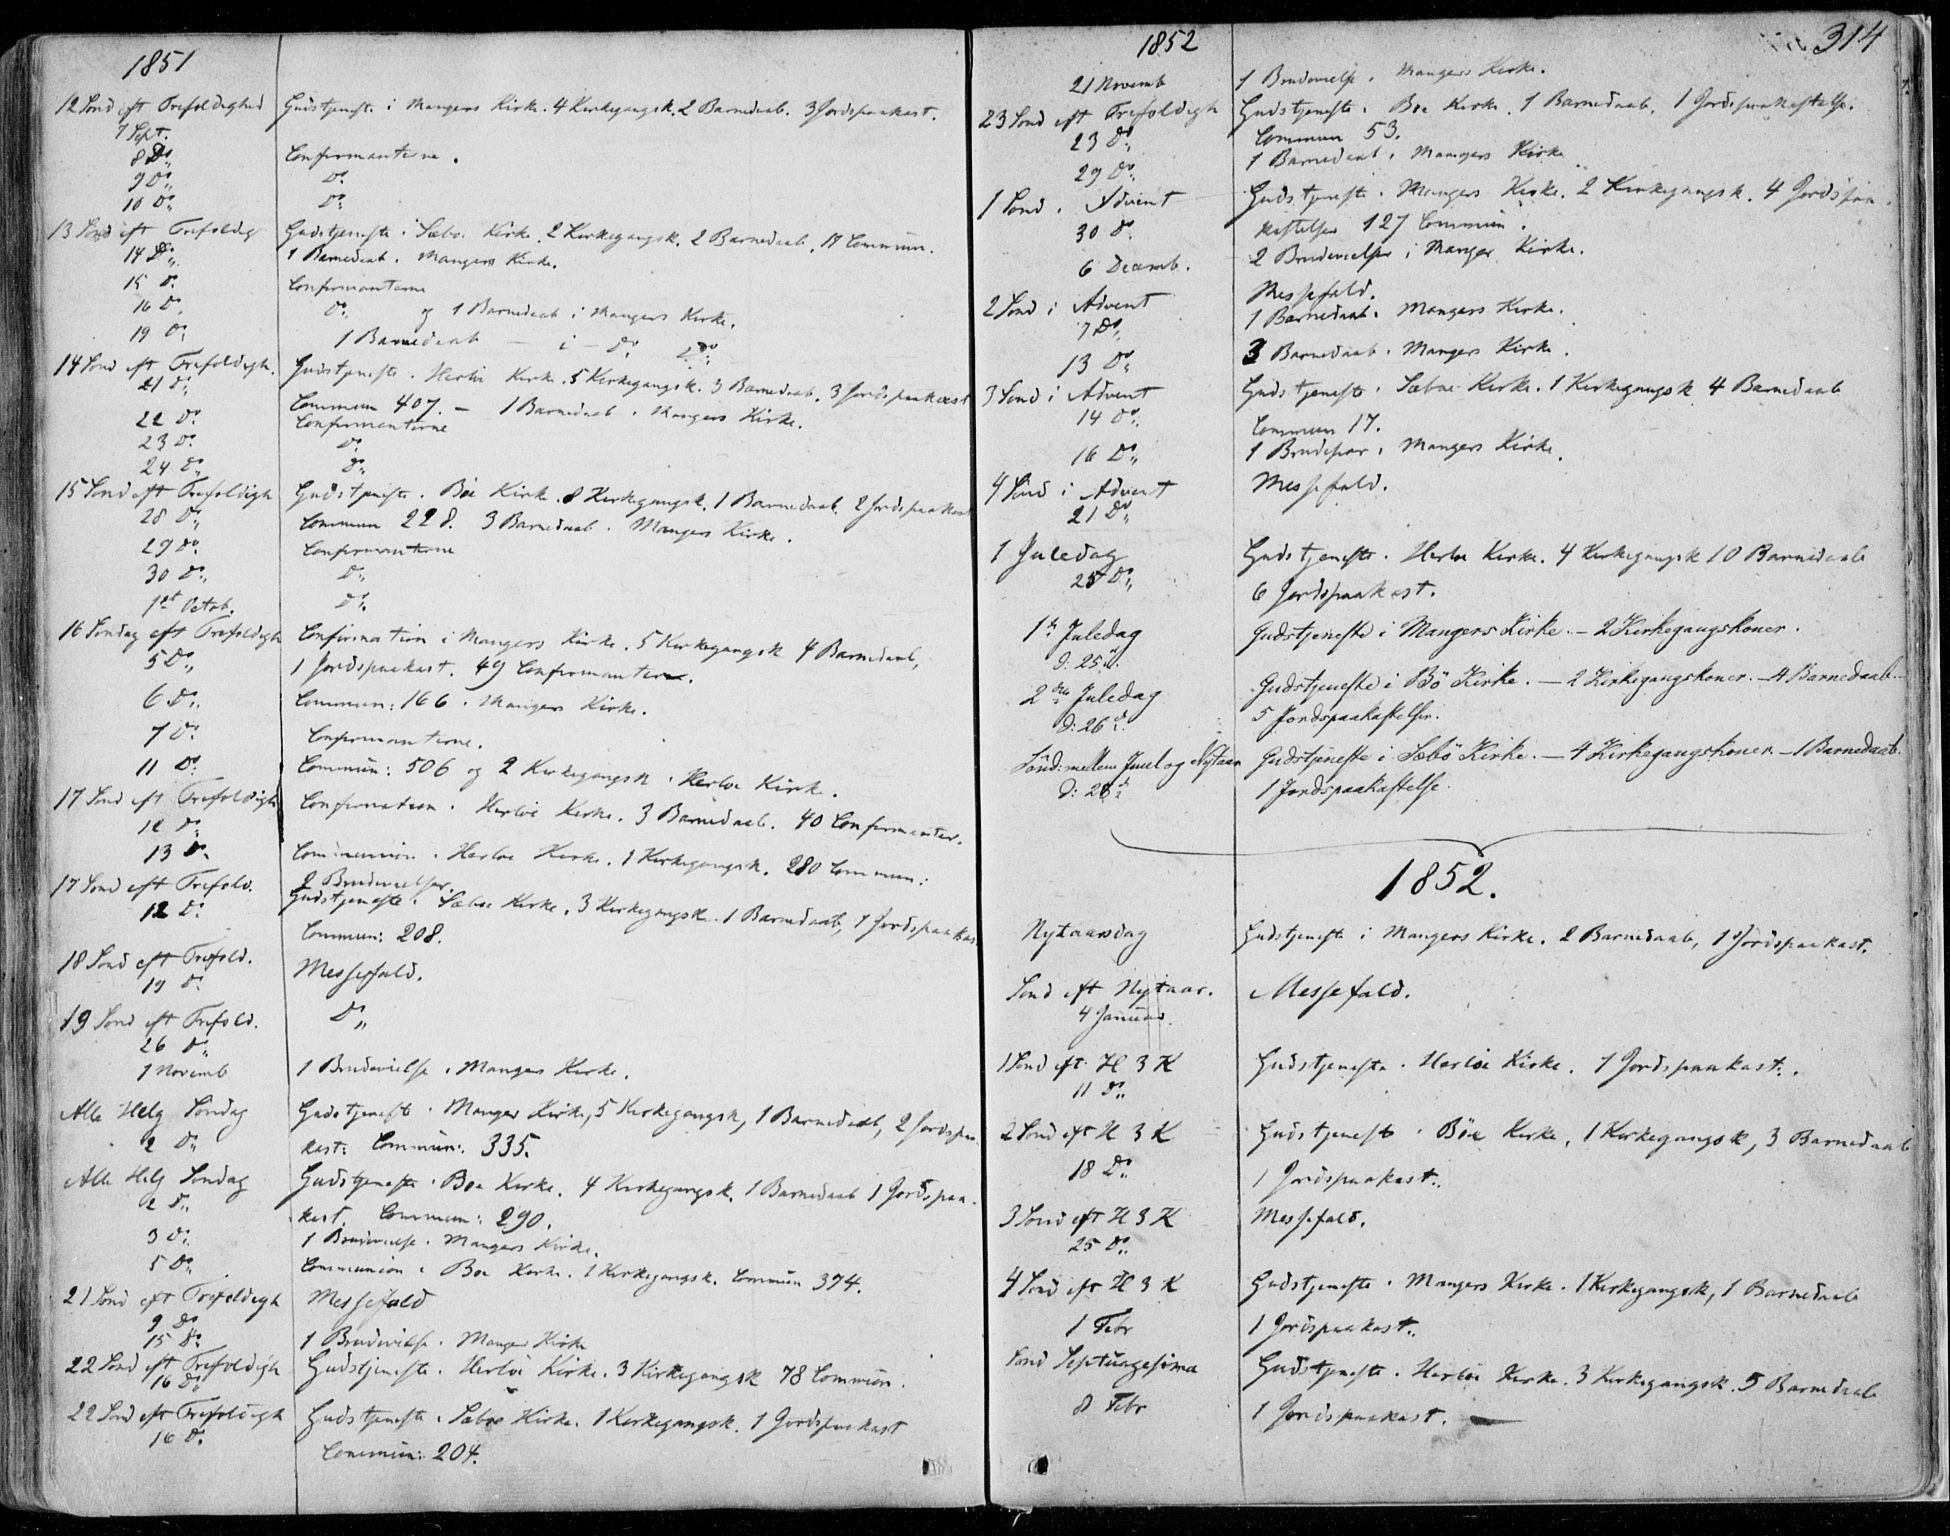 1851
12 Sønd eft Trefoldighed Gudstjeneste i Mangers Kirke. 4 Kirkegangsk. 2 Barnedaab. 3 Jordspaakast.
7 Sept.
8 Do. Confirmanterne.
9 Do. Do.
10 Do. Do.
13 Sønd eft Trefoldig Gudstjeneste i Sæbøe Kirke. 2 Kirkegangsk. 2 Barnedaab. 19 Commun.
14 Do. 1 Barnedaab i Mangers Kirke.
15 Do. Confirmanterne
16 Do. Do. og 1 Barnedaab i Mangers Kirke.
19 Do. 1 Barnedaab — i — Do. Do.
14 Sønd eft Trefoldigh. Gudstjeneste i Herløe Kirke. 5 Kirkegangsk. 3 Barnedaab. 3 Jordspaakast
21 Do. Commun 407. — 1 Barnedaab i Mangers Kirke.
22 Do. Confirmanterne
23 Do. Do.
24 Do. Do.
15 Sønd eft Trefoldigh Gudstjeneste i Bøe Kirke. 8 Kirkegangsk. 1 Barnedaab. 2 Jordspaakast
28 Do. Commun 228. 3 Barnedaab i Mangers Kirke.
29 Do. Confirmanterne
30 Do. Do.
1st Octob. Do.
16 Søndag eft Trefoldigh Confirmation i Mangers Kirke. 5 Kirkegangsk 4 Barnedaab,
5 Do. 1 Jordspaakast. 49 Confirmanter.
6 Do. Commun: 166 i Mangers Kirke.
7 Do. Confirmanterne.
11 Do. Commun: 506 og 2 Kirkegangsk i Herløe Kirke.
17 Sønd eft Trefoldigh Confirmation i Herløe Kirke. 3 Barnedaab. 40 Confirmanter.
12 Do.
13 Do. Communion i Herløe Kirke. 1 Kirkegangsk. 280 Commun:
2 Brudevielser.
17 Sønd eft Trefold. Gudstjeneste i Sæbøe Kirke. 3 Kirkegangsk. 1 Barnedaab, 1 Jordspaakas
12 Do. Commun: 208.
18 Sønd eft Trefold. Messefald.
19 Do.
19 Sønd eft Trefold. Do.
26 Do.
1 Novemb 1 Brudevielse i Manges Kirke.
Alle Helg Søndag Gudstjeneste i Manger Kirke, 5 Kirkegangsk, 1 Barnedaab, 2 Jordspaa
2 Do. kast: Commun: 335.
Alle Helg Søndag Gudstjeneste i Bøe Kirke. 4 Kirkegangsk. 1 Barnedaab 1 Jordspaa
2 Do. kast. Commun: 290.
3 Do. 1 Brudevielse i Mangers Kirke.
5 Do. Communion i Bøe Kirke. 1 Kirkegangsk. Commun 374.
21 Sønd eft Trefoldigh Messefald
9 Do.
15 Do. 1 Brudevielse i Manger Kirke
22 Sønd eft Trefoldigh Gudstjeneste i Herløe Kirke. 3 Kirkegangsk 78 Commun.
16 Do.
22 Sønd eft Trefoldigh Gudstjeneste i Sæbøe Kirke. 1 Kirkegangsk. 1 Jordspaakast
16 Do. Commun: 204.
1852
314
21 Novemb 1 Brudevielse i Mangers Kirke.
23 Sønd eft Trefoldigh Gudstjeneste i Bøe Kirke. 1 Barnedaab, 1 Jordspaakastelse.
23 Do. Commun 53.
29 Do. 1 Barnedaab i Mangers Kirke
1 Sønd i Advent Gudstjeneste i Mangers Kirke. 2 Kirkegangsk. 4 Jordspaa
30 Do. kastelser 127 Commun.
6 Decemb. 2 Brudevielser i Manger Kirke.
2 Sønd i Advent Messefald.
7 Do. 1 Barnedaab i Mangers Kirke.
13 Do. 3 Barnedaab i Manger Kirke.
3 Sønd i Advent Gudstjeneste i Sæbøe Kirke. 1 Kirkegangsk 4 Barnedaab
14 Do. Commun 17.
16 Do. 1 Brudepar i Mangers Kirke.
4 Sønd i Advent Messefald.
21 Do.
1 Juledag Gudstjeneste i Herløe Kirke. 4 Kirkegangsk 10 Barnedaab
25 Do. 6 Jordspaakast.
1ste Juledag Gudstjeneste i Mangers Kirke. — 2 Kirkegangskoner.
d: 25d.
2den Juledag Gudstjeneste i Bö Kirke. — 2 Kirkegangskoner. — 4 Barnedaab —
d: 26d. 5 Jordspaakastelser.
Sönd: mellem Juul og Nytaar Gudstjeneste i Sæbö Kirke. — 4 Kirkegangskoner — 1 Barnedaab.
d: 28d 1 Jordspaakastelse.
1852.
Nytaarsdag Gudstjeneste i Mangers Kirke. 2 Barnedaab, 1 Jordspaakast.
Sønd eft Nytaar. Messefald.
4 Januar.
1 Sønd eft H 3 K Gudstjeneste i Herløe Kirke. 1 Jordspaakast.
11 Do.
2 Sønd eft H 3 K Gudstjeneste i Bøe Kirke, 1 Kirkegangsk, 3 Barnedaab
18 Do. 1 Jordspaakast.
3 Sønd eft H 3 K Messefald.
25 Do.
4 Sønd eft H 3 K Gudstjeneste i Mangers Kirke. 1 Kirkegangsk, 1 Barnedaab
1 Febr 1 Jordspaakast.
Sønd Septuagesima Gudstjeneste i Herløe Kirke. 3 Kirkegangsk. 5 Barnedaab
8 Febr 1 Jordspaakast.